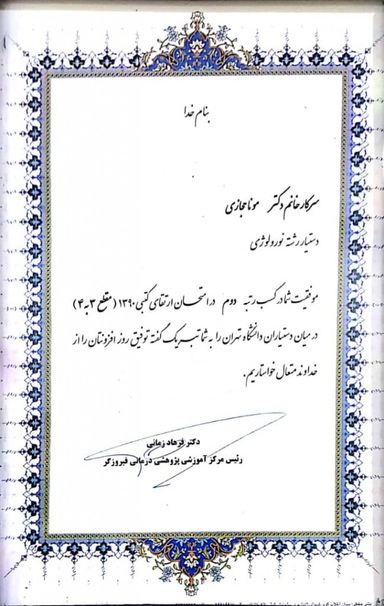 بنام خدا
سرکار خانم دکتر مونا حجازی
دستیار رشته نورولوژی
موفقیت شما در کسب رتبه دوم در امتحان ارتقای کتبی ۱۳۹۰ (مقطع ۳ به ۴)
در میان دستیاران دانشگاه تهران را به شما تبریک گفته توفیق روز افزونتان را از
خداوند متعال خواستاریم.
دکتر فرهاد زمانی
رئیس مرکز آموزشی پژوهشی درمانی فیروزگر